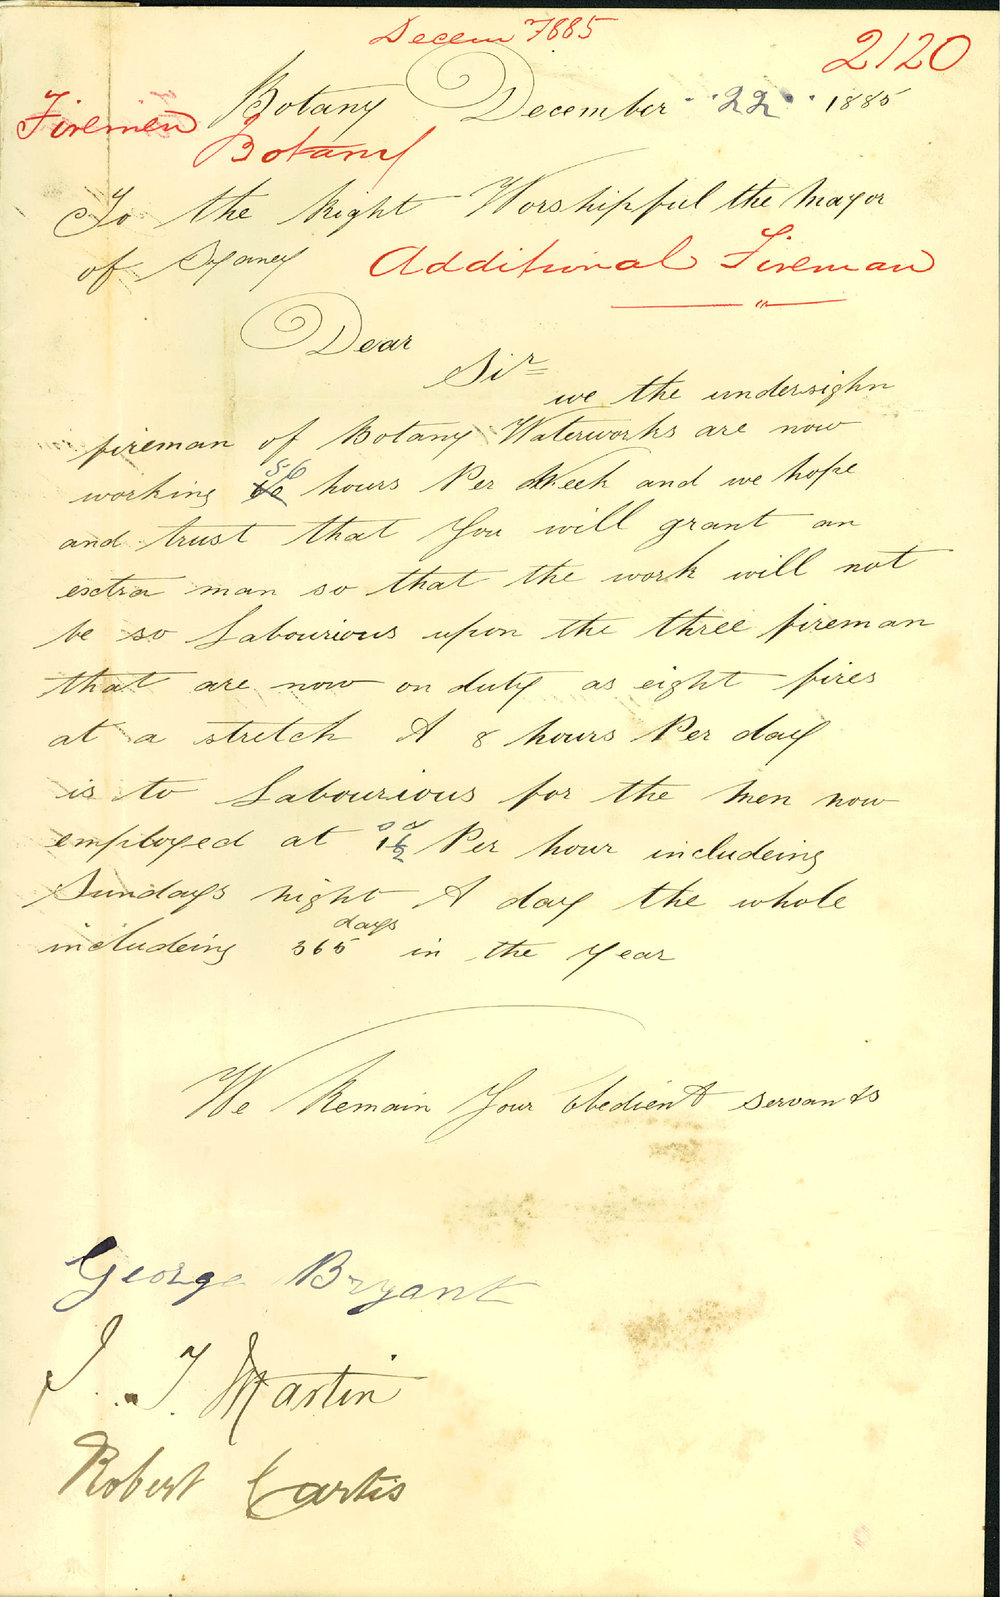 Decem 7885
2120
Botany December 22 1885
Firemen
Botany
To the Right Worshipful the Mayor
of Sydney
Additional Fireman
Dear
Sir
we the undersighn
fireman of Botany Waterworks are now
working 56 hours Per Week and we hope
and trust that You will grant an
extra man so that the work will not
be so Labourious upon the three fireman
that are now on duty as eight fires
at a stretch A 8 hours Per day
is to Labourious for the Men now
employed at Per hour includeing
Sundays night A day the whole
includeing 365 days in the Year
We Remain Your obedient servants
George Bryant
J. T Martin
Robert Cartis